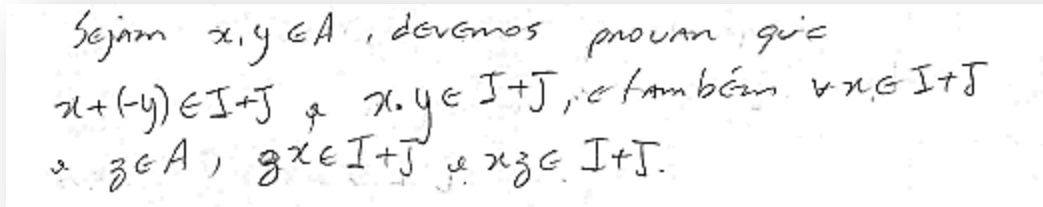 Sejam x, y ∈ A, devemos provar que
x+(-y) ∈ I+J e x.y ∈ I+J, e também ∀ x ∈ I+J
e z ∈ A, zx ∈ I+J e xz ∈ I+J.